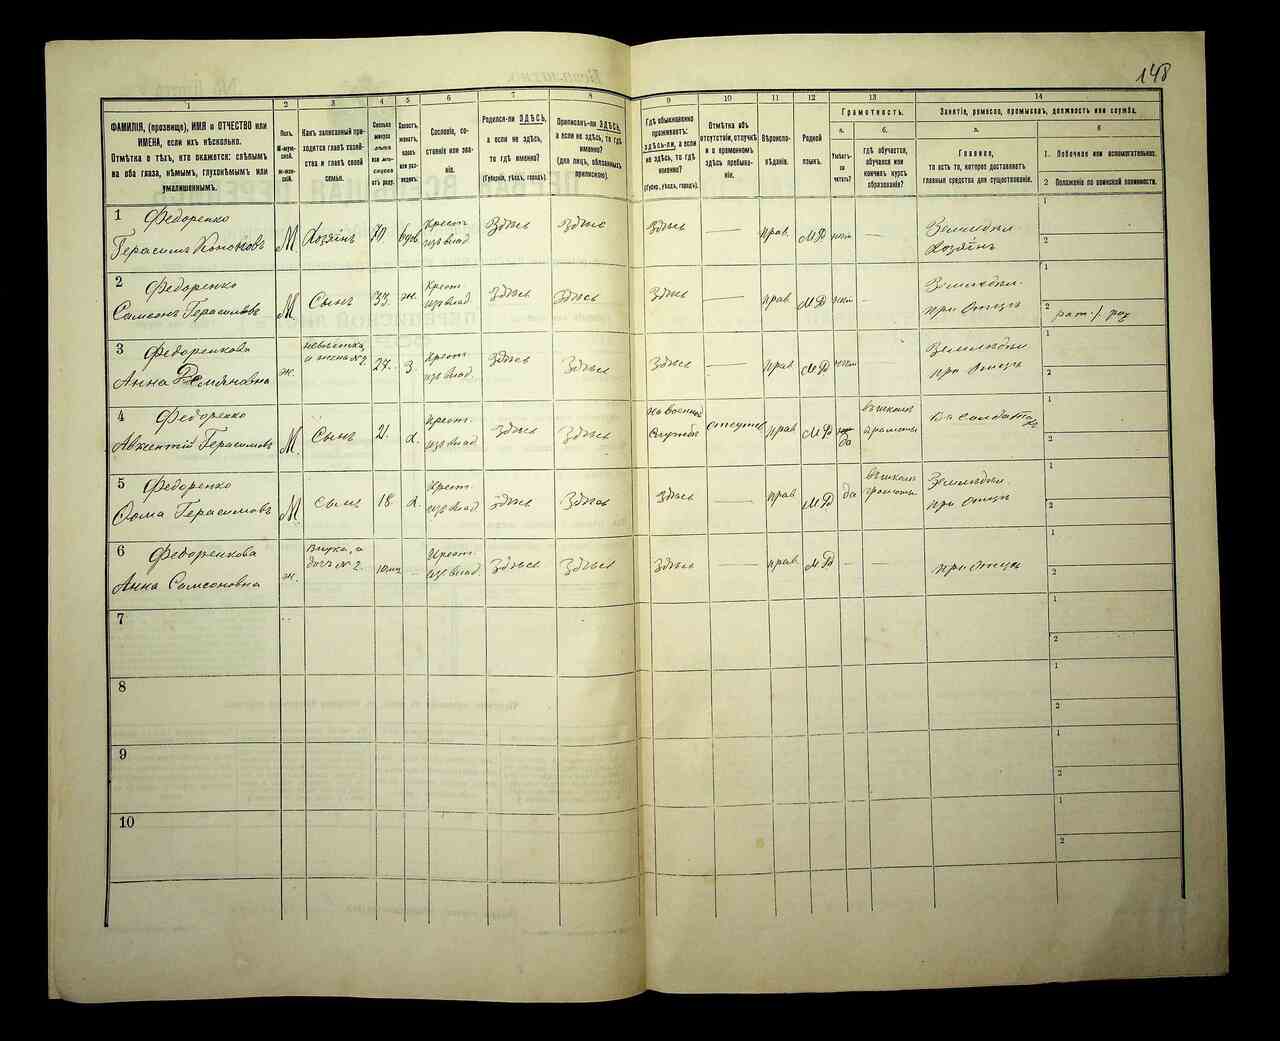 148
1
2
3
4
5
6
7
8
9
10
11
12
13
14
ФАМИЛІЯ, (прозвище), ИМЯ и ОТЧЕСТВО или
ИМЕНА, если ихъ нѣсколько.
Отмѣтка о тѣхъ, кто окажется: слѣпымъ
на оба глаза, нѣмымъ, глухонѣмымъ или
умалишеннымъ.
Полъ.
М-муж-
ской.
Ж-жен-
скій.
Какъ записанный при-
ходится главѣ хозяй-
ства и главѣ своей
семьи.
Сколько
минуло
лѣтъ
или мѣся-
цевъ
отъ роду.
Холостъ,
женатъ,
вдовъ
или раз-
веденъ.
Сословіе, со-
стояніе или зва-
ніе.
Родился-ли ЗДѢСЬ,
а если не здѣсь,
то гдѣ именно?
(Губернія, уѣздъ, городъ).
Приписанъ-ли ЗДѢСЬ,
а если не здѣсь, то гдѣ
именно?
(для лицъ, обязанныхъ
припискою).
Гдѣ обыкновенно
проживаетъ:
здѣсь-ли, а если
не здѣсь, то гдѣ
именно?
(Губерн., уѣздъ, городъ).
Отмѣтка объ
отсутствіи, отлучкѣ
и о временномъ
здѣсь пребыва-
ніи.
Вѣроиспо-
вѣданіе.
Родной
языкъ.
Грамотность.
а.
б.
Умѣетъ-
ли
читать?
гдѣ обучается,
обучался или
кончилъ курсъ
образованія?
Занятіе, ремесло, промыселъ, должность или служба.
а.
б
Главное,
то есть то, которое доставляетъ
главныя средства для существованія.
1. Побочное или вспомогательное.
2 Положеніе по воинской повинности.
1 Федоренко
Герасимъ Кононовъ М Хозяинъ 70 вдов Крест. изъ влад. Здѣсь Здѣсь Здѣсь — прав. МР нет — Земледѣл. Хозяинъ
1
2
2 Федоренко
Самсонъ Герасимовъ М Сынъ 33 ж. Крест. изъ влад. Здѣсь Здѣсь Здѣсь — прав. МР нет — Земледѣл. при Отцѣ
1
2
3 Федоренкова
Анна Демяновна ж. невѣстка, и жена №2. 27. З. Крест. изъ влад. Здѣсь Здѣсь Здѣсь — прав. МР нет Земледѣл. при Отцѣ
1
2
4 Федоренко
Авжентій Герасимовъ М Сынъ 21. х. Крест. изъ влад. Здѣсь Здѣсь На военной Службѣ отсутв прав МР да въ школѣ грамоты
1
2
5 Федоренко
Фома Герасимовъ М Сынъ 18 х. Крест. изъ влад. Здѣсь Здѣсь Здѣсь — прав МР да въ школѣ грамоты Земледѣл. при Отцѣ
1
2
6 Федоренкова
Анна Самсоновна ж. Внука, а дочь №2. Крест. изъ влад. Здѣсь Здѣсь Здѣсь — прав. МР — — при Отцѣ
1
2
7
1
2
8
1
2
9
1
2
10
1
2